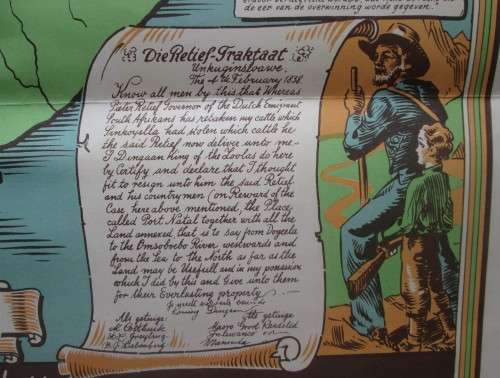 de eer van de overwinning worde gegeven.
Die Retief-Traktaat
Unkuginsloawe,
The 4th February 1838.
Know all men by this that Whereas
Pieter Retief Governor of the Dutch Emigrant
South Afrikans has retaken my cattle which
Sinkoyella had stolen which cattle he
the said Retief now deliver unto me-
I Dingaan King of the Zoolas do here
by Certify and declare that I thought
fit to resign unto him the said Retief
and his countrymen (on Reward of the
Case here above mentioned the Place
called Port Natal together with all the
Land annexed, that is to say from Dogeela
to the Omsoboebo River westwards and
from the Sea to the North as far as the
Land may be Usefull and in my possesion
which I did by this and Give unto them
for their Everlasting property
Als getuige
Als getuige
M Oosthuise
Moaro Great Raadslid
A. C. Greyling
B. J. Liebenberg